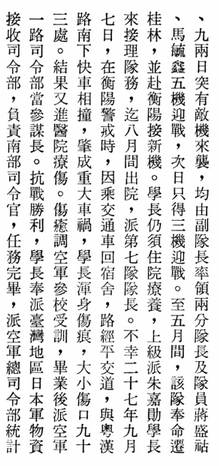 、九兩日突有敵機來襲，均由副隊長率領兩分隊長及隊員蔣盛祜
、馬毓鑫五機迎戰，次日只得三機迎戰。至五月間，該隊奉命遷
桂林，並赴衡陽接新機。學長仍須住院療養，上級派朱嘉勛學長
來接理隊務，迄八月間出院，派第七隊隊長。不幸二十七年九月
七日，在衡陽警戒時，因乘交通車回宿舍，路經平交道，與粵漢
路南下快車相撞，肇成重大車禍，學長渾身傷痕，大小傷口九十
三處。結果又進醫院療傷。傷癒調空軍參校受訓，畢業後派空軍
一路司令部當參謀長。抗戰勝利，學長奉派臺灣地區日本軍物資
接收司令部，負責南部司令官，任務完畢，派空軍總司令部統計